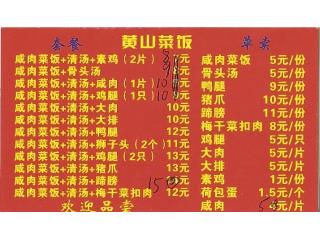 套餐 黄山菜饭 单卖
咸肉菜饭+清汤+素鸡（2片） 元
咸肉菜饭+骨头汤 8元
咸肉菜饭+清汤+咸肉（1片） 10元
咸肉菜饭+清汤+鸡腿（1只） 10元
咸肉菜饭+清汤+大肉 10元
咸肉菜饭+清汤+大排 10元
咸肉菜饭+清汤+鸭腿 12元
咸肉菜饭+清汤+狮子头（2个） 11元
咸肉菜饭+清汤+鸡腿（2只） 13元
咸肉菜饭+清汤+猪爪 13元
咸肉菜饭+清汤+蹄膀 15元
咸肉菜饭+清汤+梅干菜扣肉 12元
欢迎品尝
咸肉菜饭 5元/份
骨头汤 5元/份
鸭腿 9元/份
猪爪 9元/份
蹄膀 11元/份
梅干菜扣肉 8元/份
鸡腿 5元/只
大肉 5元/片
大排 5元/片
素鸡 1元/份
荷包蛋 1.5元/个
咸肉 5元/片